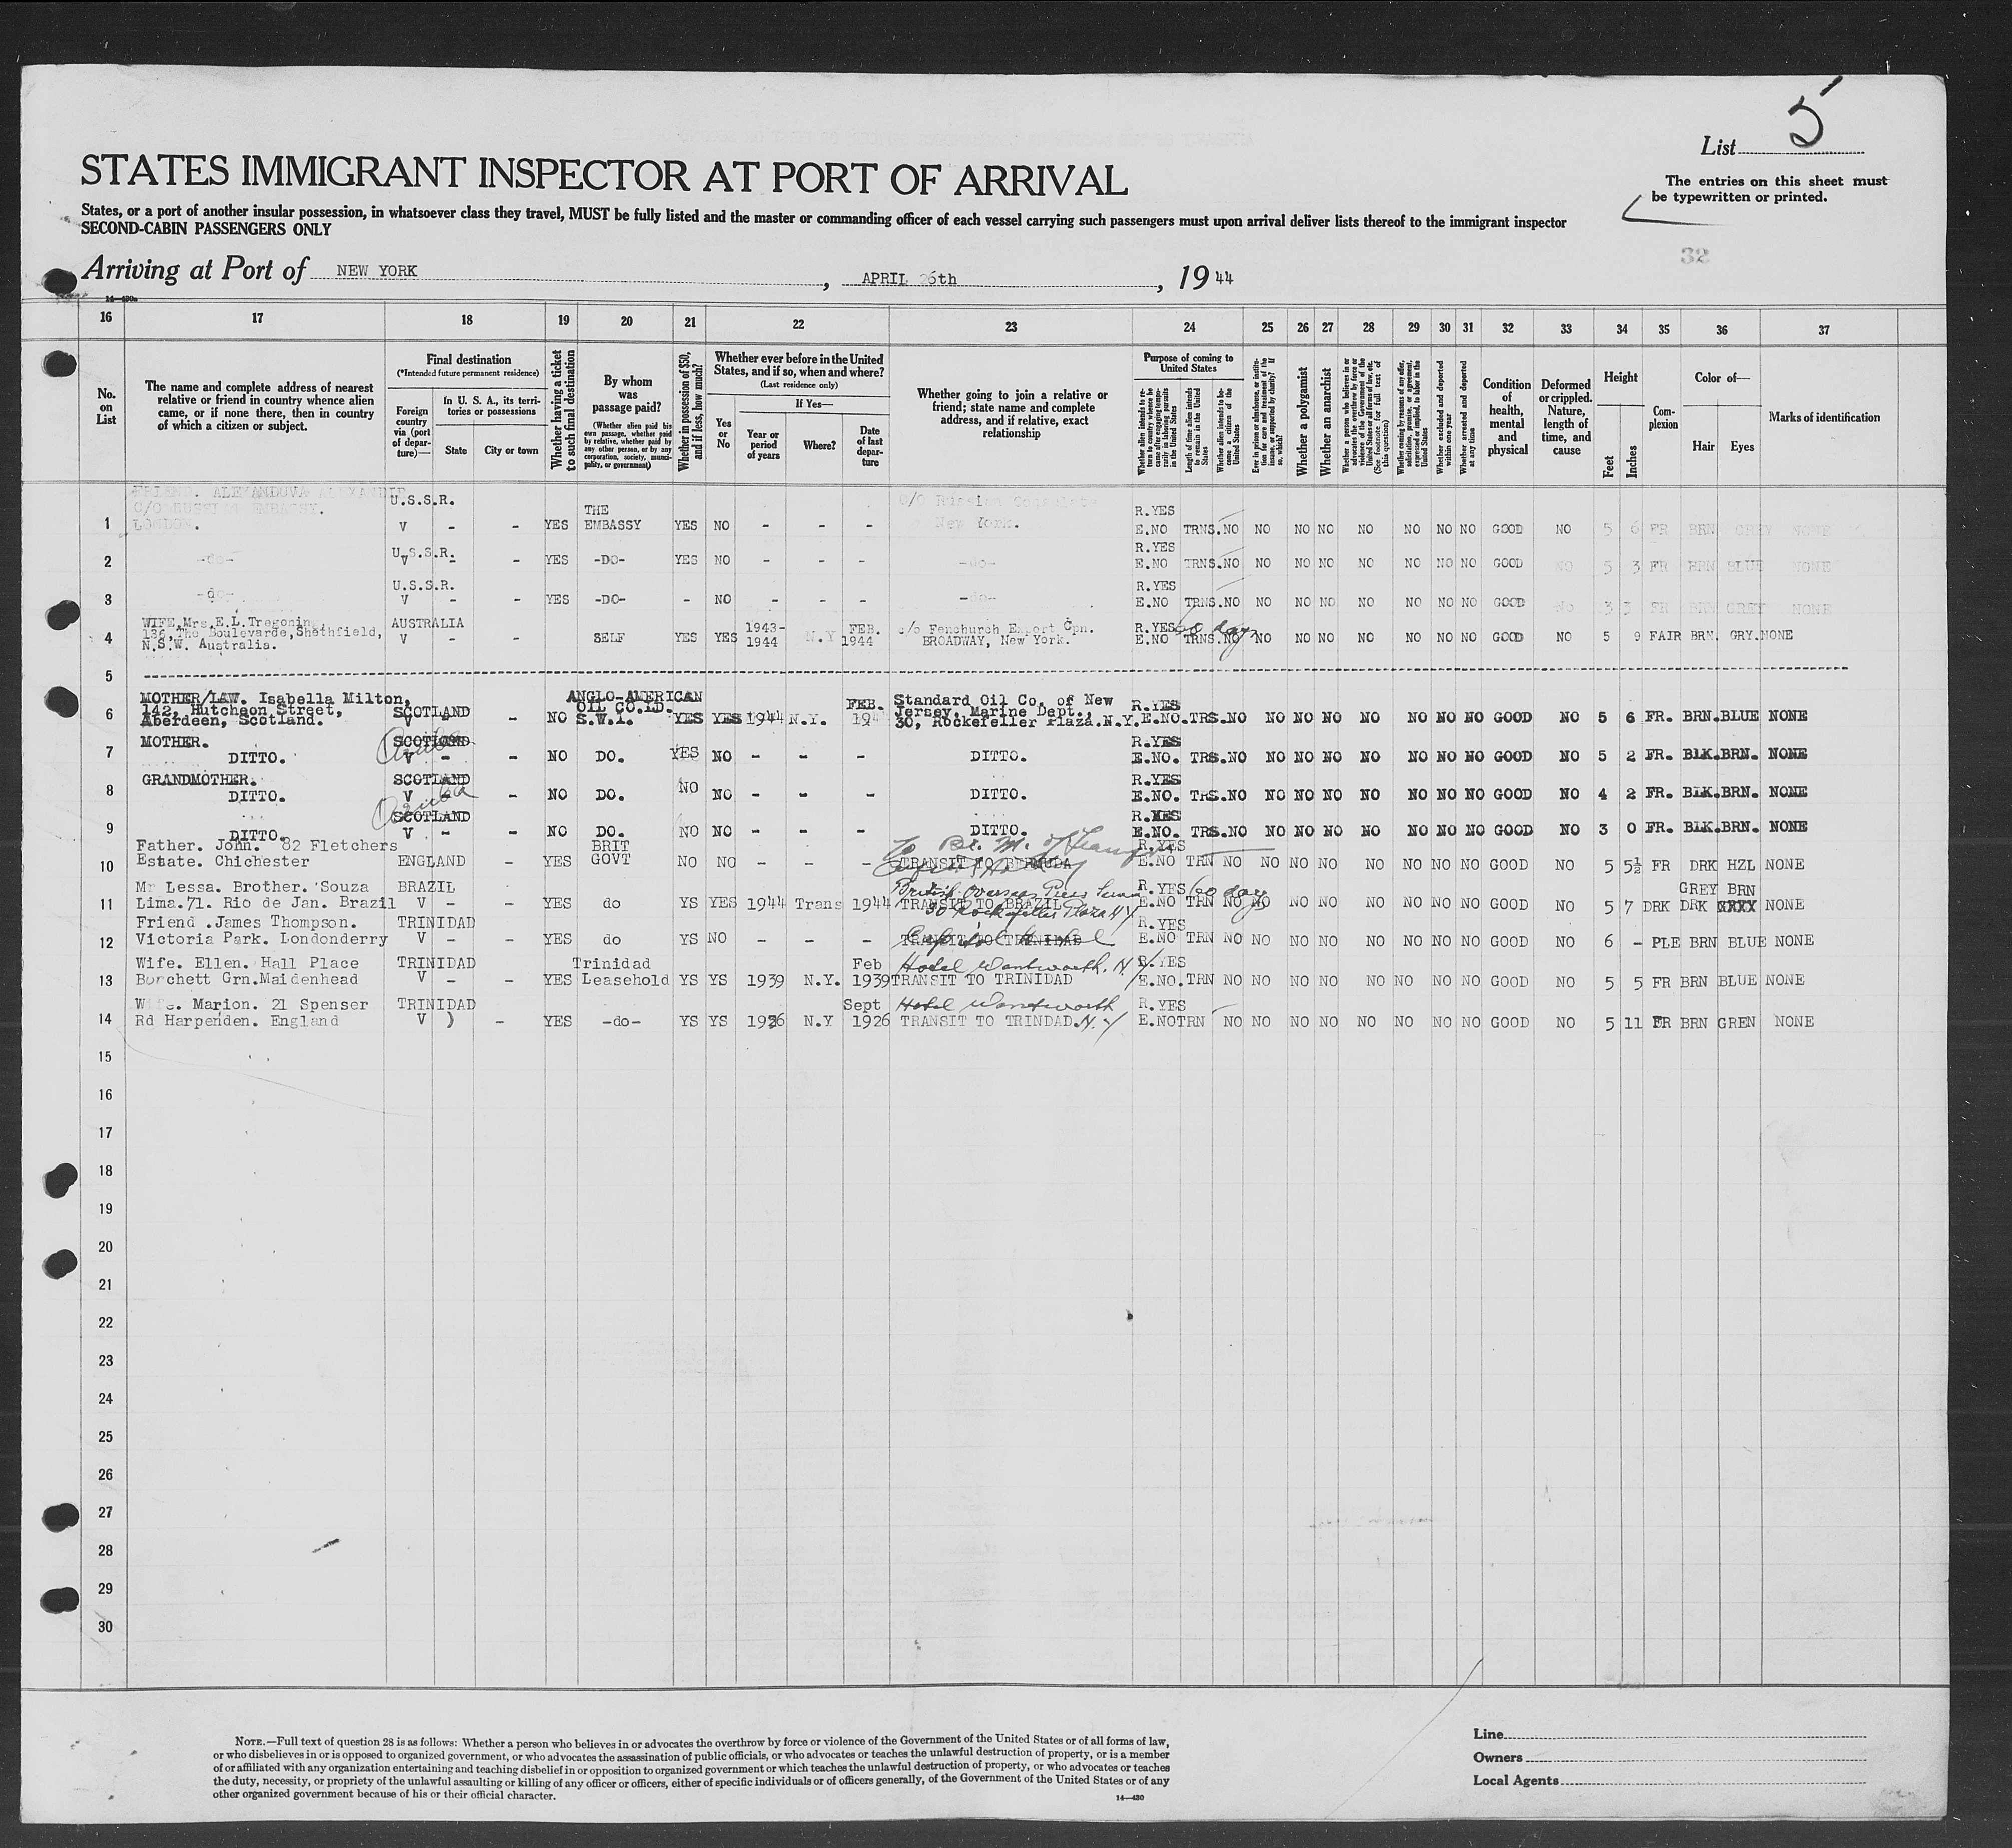 List 5
STATES IMMIGRANT INSPECTOR AT PORT OF ARRIVAL
The entries on this sheet must
be typewritten or printed.
States, or a port of another insular possession, in whatsoever class they travel, MUST be fully listed and the master or commanding officer of each vessel carrying such passengers must upon arrival deliver lists thereof to the immigrant inspector
SECOND-CABIN PASSENGERS ONLY
32
Arriving at Port of NEW YORK, APRIL 26th, 1944
14—430a
16 17 18 19 20 21 22 23 24 25 26 27 28 29 30 31 32 33 34 35 36 37
No. on List
The name and complete address of nearest relative or friend in country whence alien came, or if none there, then in country of which a citizen or subject.
Final destination
(*Intended future permanent residence)
Foreign country via (port of departure)—
In U. S. A., its territories or possessions
State
City or town
Whether having a ticket to such final destination
By whom was passage paid?
(Whether alien paid his own passage, whether paid by relative, whether paid by any other person, or by any corporation, society, municipality, or government)
Whether in possession of $50, and if less, how much?
Whether ever before in the United States, and if so, when and where?
(Last residence only)
Yes or No
If Yes—
Year or period of years
Where?
Date of last departure
Whether going to join a relative or friend; state name and complete address, and if relative, exact relationship
Purpose of coming to United States
Whether alien intends to return to country whence he came after engaging temporarily in laboring pursuits in the United States
Length of time alien intends to remain in the United States
Whether alien intends to become a citizen of the United States
Ever in prison or almshouse, or institution for care and treatment of the insane, or supported by charity? If so, which?
Whether a polygamist
Whether an anarchist
Whether a person who believes in or advocates the overthrow by force or violence of the Government of the United States or all forms of law, etc. (See footnote for full text of this question)
Whether coming by reasons of any offer, solicitation, promise, or agreement, expressed or implied, to labor in the United States
Whether excluded and deported within one year
Whether arrested and deported at any time
Condition of health, mental and physical
Deformed or crippled. Nature, length of time, and cause
Height
Feet
Inches
Complexion
Color of—
Hair
Eyes
Marks of identification
FRIEND. ALEXANDUVA ALEXANDER U.S.S.R. C/O Russian Consulate
C/O RUSSIAN EMBASSY. THE R.YES
1 LONDON. V - - YES EMBASSY YES NO - - - New York. E.NO TRNS. NO NO NO NO NO NO NO NO GOOD NO 5 6 FR BRN GREY NONE
U.S.S.R. R.YES
2 -do- V - - YES -DO- YES NO - - - -do- E.NO TRNS. NO NO NO NO NO NO NO NO GOOD NO 5 3 FR BRN BLUE NONE
U.S.S.R. R.YES
3 -do- V - - YES -DO- - NO - - - -do- E.NO TRNS. NO NO NO NO NO NO NO NO GOOD NO 3 3 FR BRN GREY NONE
WIFE, Mrs. E.L. Tregoning, AUSTRALIA 1943- FEB. c/o Fenchurch Export Cpn. R.YES 60 days
4 136, The Boulevarde, Shethfield, V - SELF YES YES 1944 N.Y 1944 BROADWAY, New York. E.NO TRNS. NO NO NO NO NO NO NO NO GOOD NO 5 9 FAIR BRN. GRY. NONE
N.S.W. Australia.
5
MOTHER/LAW. Isabella Milton, ANGLO-AMERICAN Standard Oil Co. of New
142, Hutcheon Street, SCOTLAND OIL CO.LD. FEB. Jersey. Marine Dept., R.YES
6 Aberdeen, Scotland. V - - NO S.W.1. YES YES 1944 N.Y. 194 30, Rockefeller Plaza. N.Y. E.NO. TRS. NO NO NO NO NO NO NO NO GOOD NO 5 6 FR. BRN. BLUE NONE
MOTHER. SCOTLAND Aruba R.YES
7 DITTO. V - - NO DO. YES NO - - - DITTO. E.NO. TRS. NO NO NO NO NO NO NO NO GOOD NO 5 2 FR. BLK. BRN. NONE
GRANDMOTHER. SCOTLAND R.YES
8 DITTO. V - - NO DO. NO NO - - - DITTO. E.NO. TRS. NO NO NO NO NO NO NO NO GOOD NO 4 2 FR. BLK. BRN. NONE
SCOTLAND Aruba R.YES
9 DITTO. V - - NO DO. NO NO - - - DITTO. E.NO. TRS. NO NO NO NO NO NO NO NO GOOD NO 3 0 FR. BLK. BRN. NONE
Father. John. 82 Fletchers BRIT To Br. M. of R.YES
10 Estate. Chichester ENGLAND - YES GOVT NO NO - - - TRANSIT TO BERMUDA E.NO TRN NO NO NO NO NO NO NO NO GOOD NO 5 5½ FR DRK HZL NONE
Mr Lessa. Brother. Souza BRAZIL British Overseas Press R.YES 60 days GREY BRN
11 Lima. 71. Rio de Jan. Brazil V - - YES do YS YES 1944 Trans 1944 TRANSIT TO BRAZIL E.NO TRN NO NO NO NO NO NO NO NO GOOD NO 5 7 DRK DRK XXXX NONE
30 Rockefeller Plaza NY
Friend. James Thompson. TRINIDAD R.YES
12 Victoria Park. Londonderry V - - YES do YS NO - - - TRANSIT TO TRINIDAD E.NO TRN NO NO NO NO NO NO NO NO GOOD NO 6 - PLE BRN BLUE NONE
Wife. Ellen. Hall Place TRINIDAD Trinidad Feb Hotel Wentworth, N.Y R.YES
13 Borchett Grn. Maidenhead V - - YES Leasehold YS YS 1939 N.Y. 1939 TRANSIT TO TRINIDAD E.NO. TRN NO NO NO NO NO NO NO NO GOOD NO 5 5 FR BRN BLUE NONE
Wife. Marion. 21 Spenser TRINIDAD Sept Hotel Wentworth R.YES
14 Rd Harpenden. England V ) - YES -do- YS YS 1926 N.Y 1926 TRANSIT TO TRINDAD. N.Y E.NO TRN NO NO NO NO NO NO NO NO GOOD NO 5 11 FR BRN GREN NONE
15
16
17
18
19
20
21
22
23
24
25
26
27
28
29
30
NOTE.—Full text of question 28 is as follows: Whether a person who believes in or advocates the overthrow by force or violence of the Government of the United States or of all forms of law,
or who disbelieves in or is opposed to organized government, or who advocates the assassination of public officials, or who advocates or teaches the unlawful destruction of property, or is a member
of or affiliated with any organization entertaining and teaching disbelief in or opposition to organized government or which teaches the unlawful destruction of property, or who advocates or teaches
the duty, necessity, or propriety of the unlawful assaulting or killing of any officer or officers, either of specific individuals or of officers generally, of the Government of the United States or of any
other organized government because of his or their official character.
14—430
Line
Owners
Local Agents